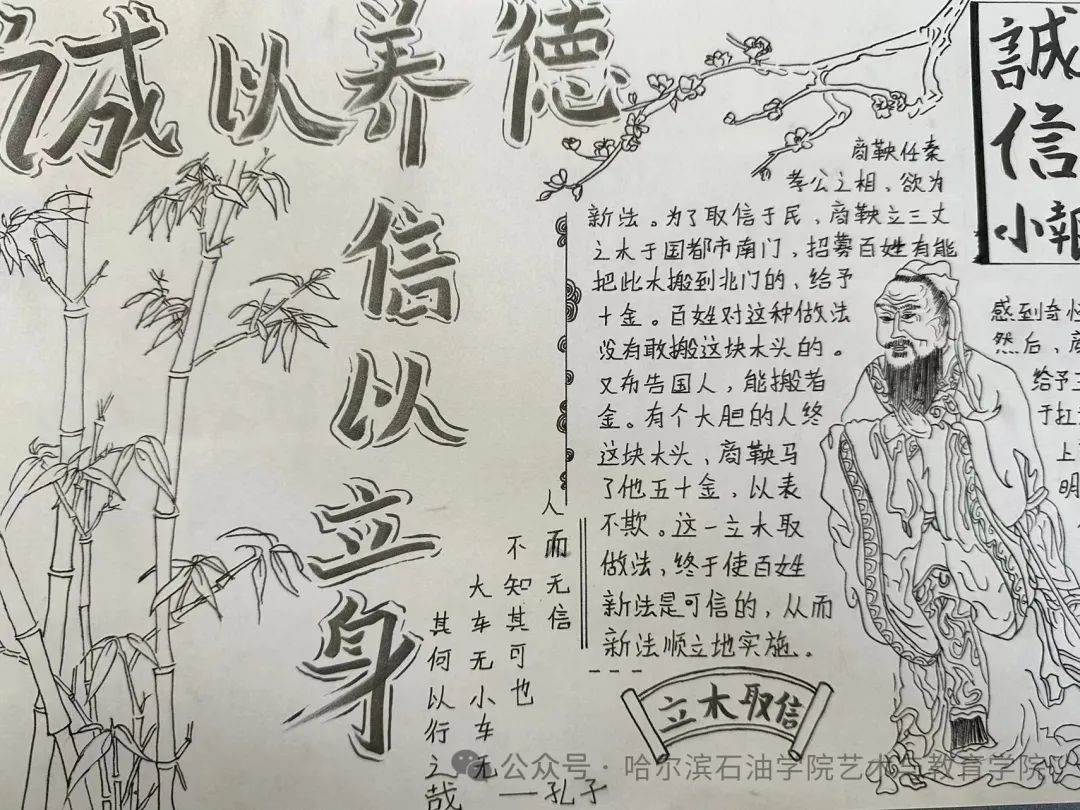 诚以养德
信以立身
誠信
小報
商鞅任秦
孝公之相、欲为
新法。为了取信于民、商鞅立三丈
之木于国都市南门,招募百姓有能
把此木搬到北门的、给予
十金。百姓对这种做法
感到奇怪
没有敢搬这块木头的。
然后、商
又布告国人,能搬者
给予
金。有个大胆的人终
于扛
这块木头、商鞅马
上
了他五十金,以表
明
不欺。这一立木取
做法,终于使百姓
新法是可信的,从而
新法顺立地实施。
立木取信
人而无信
不知其可也
大车无小车无
其何以行之哉
——孔子
公众号·哈尔滨石油学院艺术与教育学院